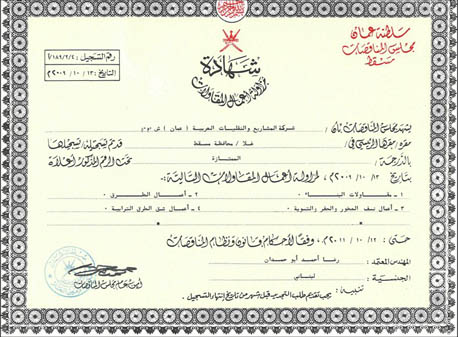 سلطنة عمان
مجلس المناقصات
مسقط
رقم التسجيل : ١/١٨٩/٢/٤
التاريخ : ١٣ / ١٠ / ٢٠٠٩م
شهادة
مزاولة أعمال المقاولات
يشهد مجلس المناقصات بأن / شركة المشاريع والتقليبات العربية (عمان) ش م م
مقره / مقرها الرئيسي في / غلا / محافظة مسقط قد تم تسجيله / تسجيلها
بالدرجة الممتازة تحت الرقم المذكور أعلاه
بتاريخ ١٣ / ١٠ / ٢٠٠٩م، لمزاولة أعمال المقاولات التالية:
١ - مقاولات البناء ٢ - أعمال الطرق
٣ - أعمال نسف الصخور والحفر والتسوية ٤ - أعمال شق الطرق الترابية
حتى : ١٢ / ١٠ / ٢٠١١م، وفقا لأحكام قانون ونظام المناقصات
المهندس المعتمد : رضا أحمد أبو حمدان
الجنسية : لبناني
تنبيه : يجب تقديم طلب التجديد قبل شهر من تاريخ انتهاء التسجيل.
أمين عام مجلس المناقصات